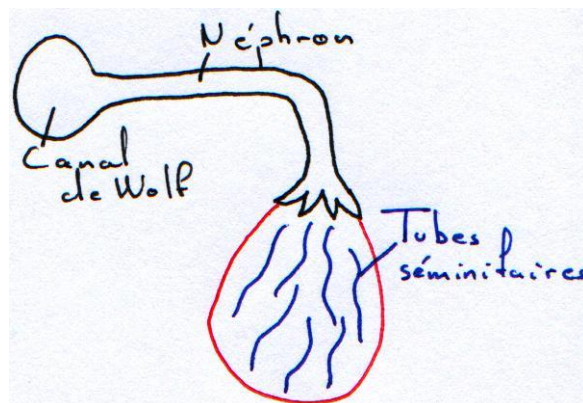 Néphron
Canal
de Wolf
Tubes
séminitaires